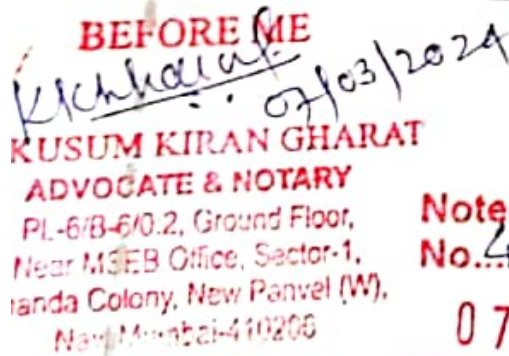 BEFORE ME
07/03/2024
KUSUM KIRAN GHARAT
ADVOCATE & NOTARY
PL-6/B-6/0.2, Ground Floor,
Near MSEB Office, Sector-1,
anda Colony, New Panvel (W),
Navi Mumbai-410206
Note
No...4
07